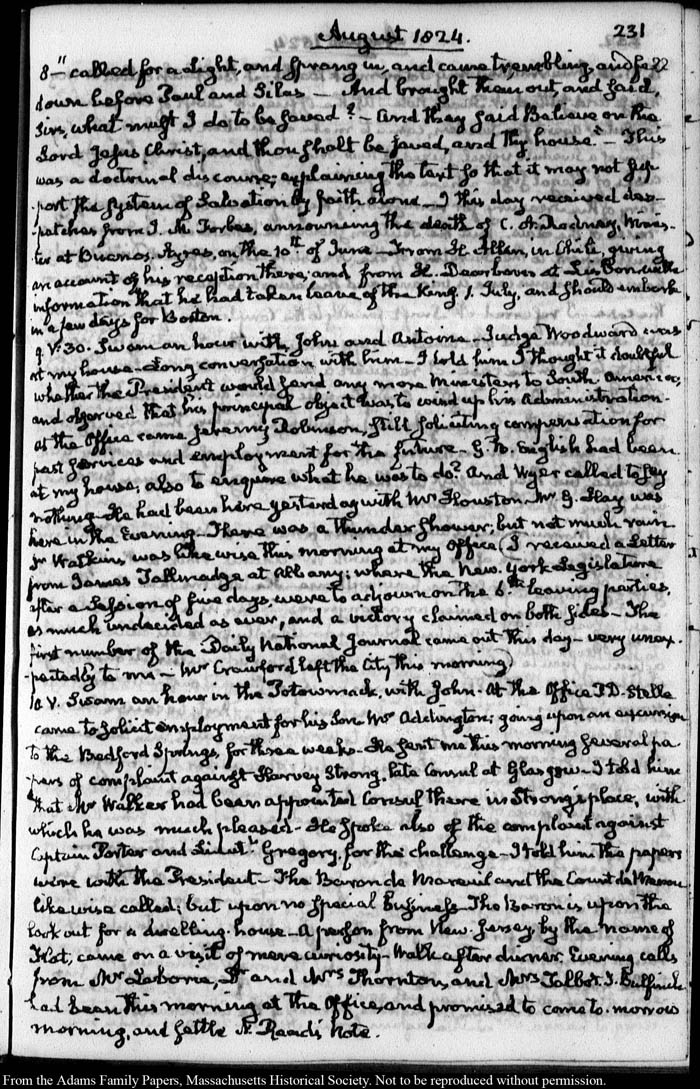 August 1824. 231
8–" called for a Light, and sprang in, and came trembling, and fell
down before Paul and Silas — And brought them out, and said,
Sirs, what must I do to be saved? — And they said Believe on the
Lord Jesus Christ, and thou shalt be saved, and thy house." — This
was a doctrinal discourse; explaining the text so that it may not sup-
port the system of Salvation by faith alone — I this day received des-
patches from J. M. Forbes, announcing the death of C. A. Rodney, Minis-
ter at Buenos-Ayres, on the 10th of June — From H. Allen, in Chili, giving
an account of his reception there; and from H. Dearborn at Lisbon with
information that he had taken leave of the King, 1. July, and should embark
in a few days for Boston.
9. V:30. Swam an hour with John and Antoine — Judge Woodward was
at my house — Long conversation with him — I told him I thought it doubtful
whether the President would send any more Ministers to South America,
and observed that his principal object was to wind up his Administration —
At the Office came Jeremy Robinson, still soliciting compensation for
past services and employment for the future — G. B. English had been
at my house, also to enquire what he was to do? And Wyer called to say
nothing — He had been here yesterday with Mr Houston. Mr G. Hay was
here in the Evening — There was a thunder shower, but not much rain
Dr Watkins was likewise this morning at my Office (I received a Letter
from James Tallmadge at Albany; where the New-York Legislature
after a Session of five days, were to adjourn on the 6.th leaving parties,
as much undecided as ever, and a victory claimed on both sides — The
first number of the Daily National Journal came out this day — very unex-
pectedly to me — Mr Crawford left the City this morning)
10. V. Swam an hour in the Potowmack, with John — At the Office J D. Stelle
came to solicit employment for his Son Mr Addington; going upon an excursion
to the Bedford Springs, for three weeks — He sent me this morning several pa
pers of complaint against Harvey Strong, late Consul at Glasgow — I told him
that Mr Walker had been appointed Consul there in Strong's place, with
which he was much pleased — He spoke also of the complaint against
Captain Porter and Lieutt Gregory, for the challenge — I told him the papers
were with the President — The Baron de Mareuil and the Count de Menou
likewise called; but upon no special business — The Baron is upon the
look out for a dwelling-house — A person from New-Jersey by the name of
came on a visit of mere curiosity — Walk after dinner. Evening calls
from Mr Laborie, Dr and Mrs Thornton, and Mrs Talbot. T. Bulfinch
had been this morning at the Office, and promised to come to-morrow
morning, and settle Reed's Note.
From the Adams Family Papers, Massachusetts Historical Society. Not to be reproduced without permission.